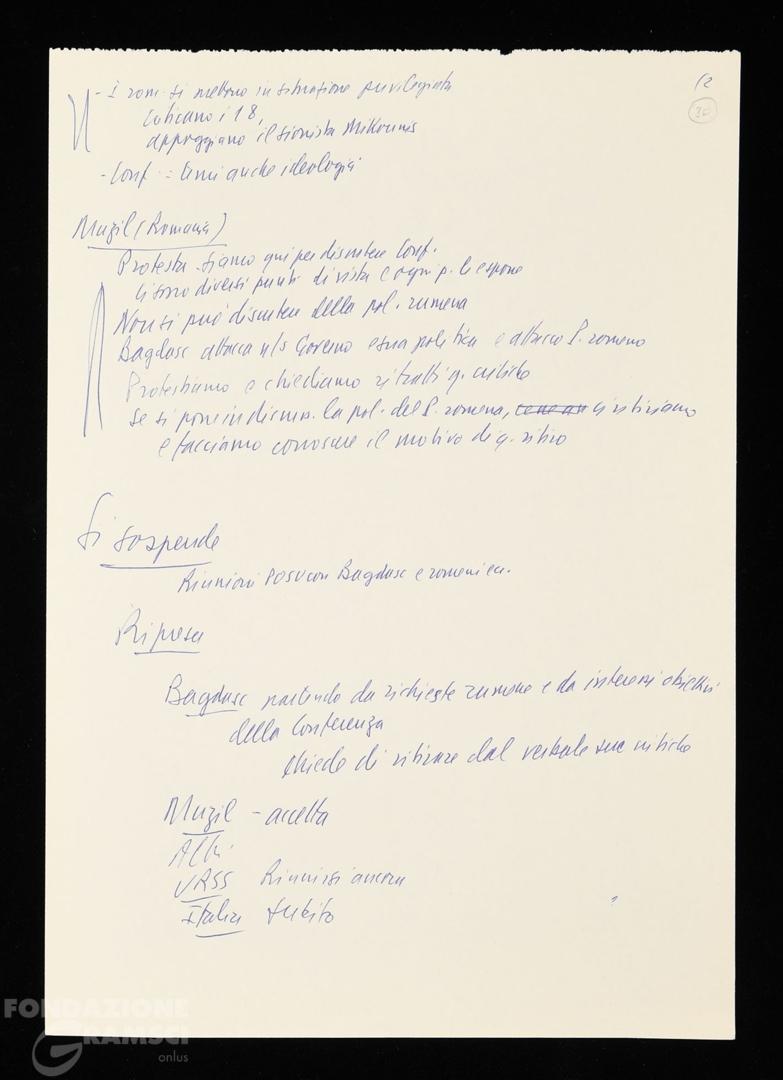 12
30
- I rom. si mettono in situazione privilegiata
criticano i 18,
appoggiano il sionista Mikounis
- Conf. = temi anche ideologici
Muzil (Romania)
Protesta - siamo qui per discutere Conf.
Ci sono diversi punti di vista e ogni p. li espone
Non si può discutere della pol. rumena
Bagdasc attacca n/s Governo e sua politica e attacco P. romeno
Protestiamo e chiediamo ritratti q. critiche
Se si pone in discuss. la pol. del P. romeno, ci ritiriamo
e facciamo conoscere il motivo di q. ritiro
Si sospende
Riunioni Posu con Bagdasc e romeni ecc.
Ripresa
Bagdasc partendo da richieste rumene e da interessi obiettivi
della Conferenza
chiede di ritirare dal verbale sue critiche
Muzil - accetta
Altri
URSS Riunirsi ancora
Italia subito
FONDAZIONE
GRAMSCI
onlus